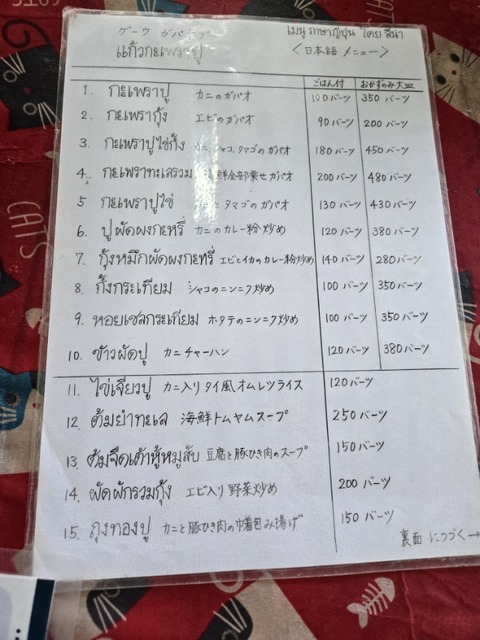 ゲーウ ガパオプー
แก้วกะเพราปู
เมนู ภาษาญี่ปุ่น โดย ลีน่า
<日本語 メニュー>
ごはん付 おかずのみ大皿
1. กะเพราปู カニのガパオ 100バーツ 350 バーツ
2. กะเพรากุ้ง エビのガパオ 90バーツ 200 バーツ
3. กะเพราปูไข่กั้ง カニ、シャコ、タマゴのガパオ 180バーツ 450 バーツ
4. กะเพราทะเลรวม 海鮮全部乗せガパオ 200バーツ 480 バーツ
5. กะเพราปูไข่ タマゴのガパオ 130バーツ 430 バーツ
6. ปูผัดผงกะหรี่ カニのカレー粉炒め 120バーツ 380バーツ
7. กุ้งหมึกผัดผงกะหรี่ エビとイカのカレー粉炒め 140バーツ 280バーツ
8. กั้งกระเทียม シャコのニンニク炒め 100バーツ 350バーツ
9. หอยเชลกระเทียม ホタテのニンニク炒め 100バーツ 350バーツ
10. ข้าวผัดปู カニチャーハン 120バーツ 380バーツ
11. ไข่เจียวปู カニ入りタイ風オムレツライス 120バーツ
12. ต้มยำทะเล 海鮮トムヤムスープ 250バーツ
13. ต้มจืดเต้าหู้หมูสับ 豆腐と豚ひき肉のスープ 150バーツ
14. ผัดผักรวมกุ้ง エビ入り野菜炒め 200バーツ
15. ถุงทองปู カニと豚ひき肉の巾着包み揚げ 150 バーツ
裏面 につづく→
CATS